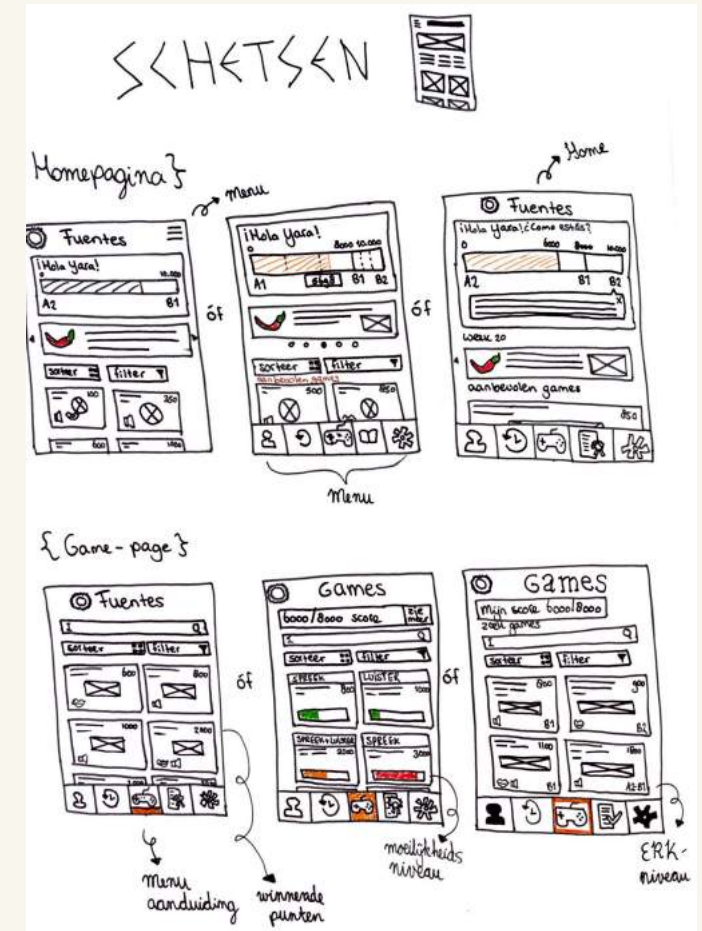 SCHETSEN
Homepagina}
Menu
Home
Fuentes
¡Hola Yara!
0
10.000
A2 B1
sorteer filter
100 250
600
óf
¡Hola Yara!
0 8000 10.000
A1 B1 B2
sorteer filter
aanbevolen games
500 850
Menu
óf
Fuentes
¡Hola Yara! ¿Como estás?
0 6000 8000 10.000
A2 B1 B2
x
week 20
aanbevolen games
850
{Game-page}
Fuentes
sorteer filter
600 800
1000 2000
menu
aanduiding
winnende
punten
óf
Games
6000/8000 score zie meer
sorteer filter
SPREEK LUISTER
800 1000
SPREEK+LUISTER SPREEK
2500 3000
moeilijkheids
niveau
óf
Games
Mijn score 6000/8000
zoek games
sorteer filter
800 900
B1 B2
1100 1800
B1 A2-B1
ERK-
niveau